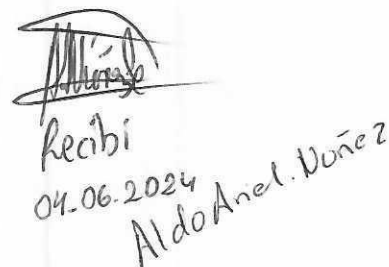 Recibí
04-06-2024
Aldo Ariel. Nuñez